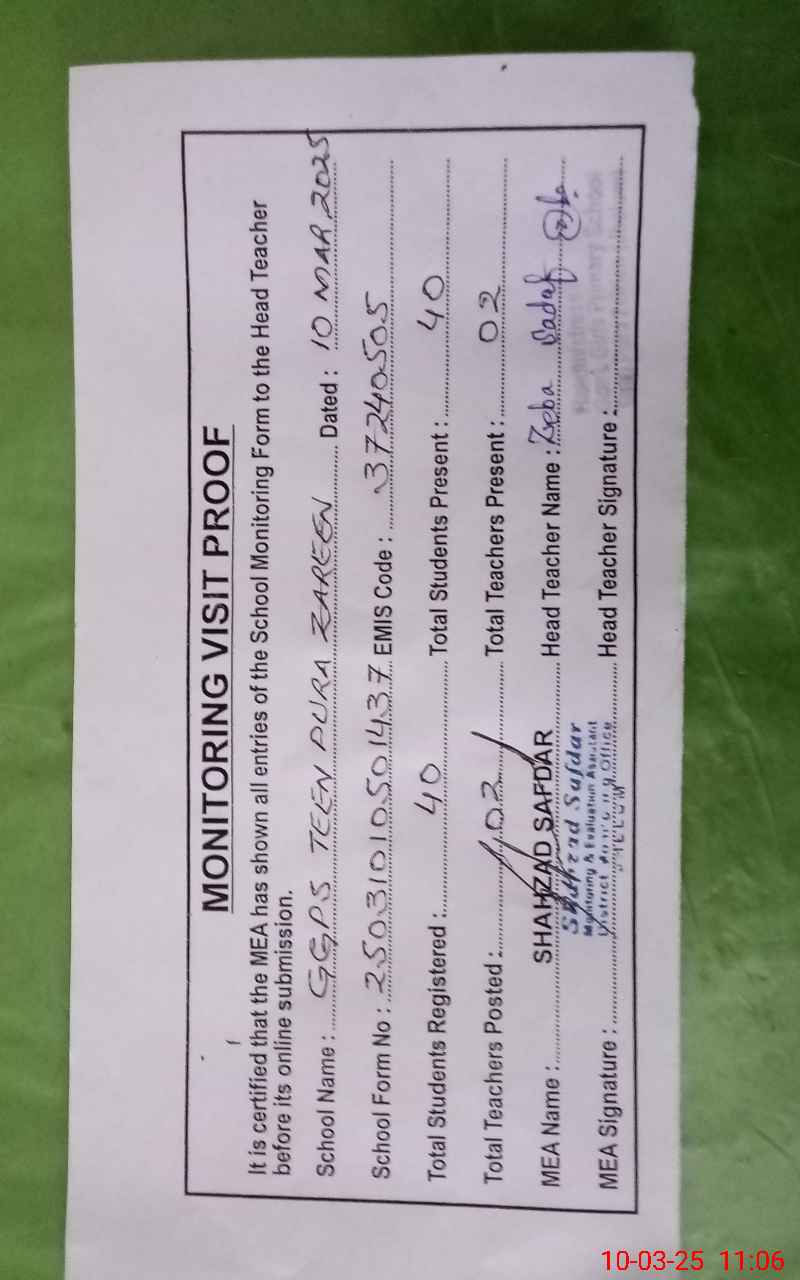 MONITORING VISIT PROOF
It is certified that the MEA has shown all entries of the School Monitoring Form to the Head Teacher
before its online submission.
School Name : GGPS TEEN PURA ZAREEN Dated : 10 MAR, 2025
School Form No : 2503101050501437 EMIS Code : 37240505
Total Students Registered : 40 Total Students Present : 40
Total Teachers Posted : 02 Total Teachers Present : 02
MEA Name : SHAHZAD SAFDAR Head Teacher Name : Zeba Sadaf
Shahzad Safdar
Monitoring & Evaluation Assistant
District Monitoring Office
MEA Signature : Head Teacher Signature :
Primary School
10-03-25 11:06